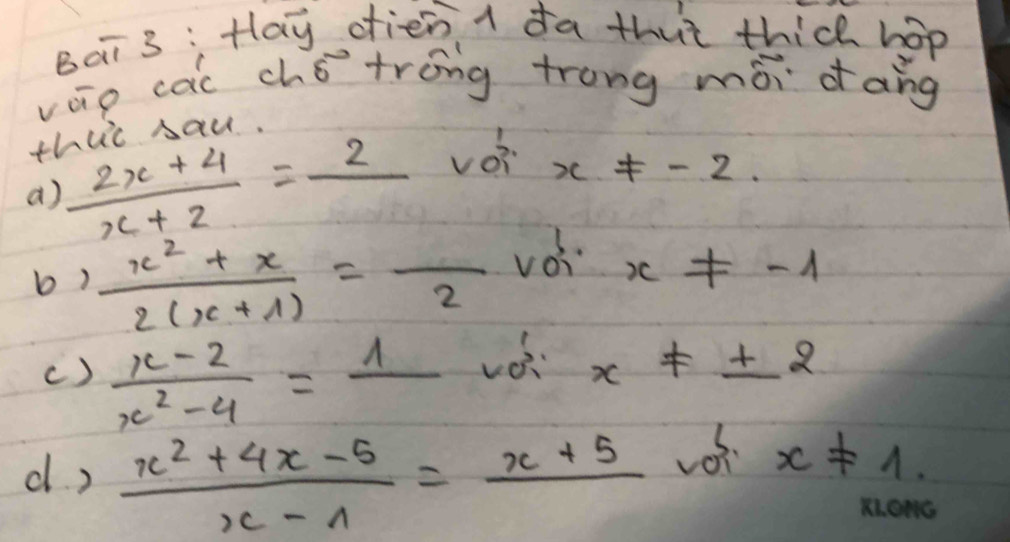 Bài 3 : Hãy điền 1 đa thức thích hợp
vào các chỗ trống trong mỗi đẳng
thức sau.
a) \frac{2x + 4}{x + 2} = \frac{2}{} với x ≠ - 2.
b) \frac{x² + x}{2(x + 1)} = \frac{}{2} với x ≠ - 1
c) \frac{x - 2}{x² - 4} = \frac{1}{} với x ≠ ± 2
d.) \frac{x² + 4x - 5}{x - 1} = \frac{x + 5}{} với x ≠ 1.
KLONG